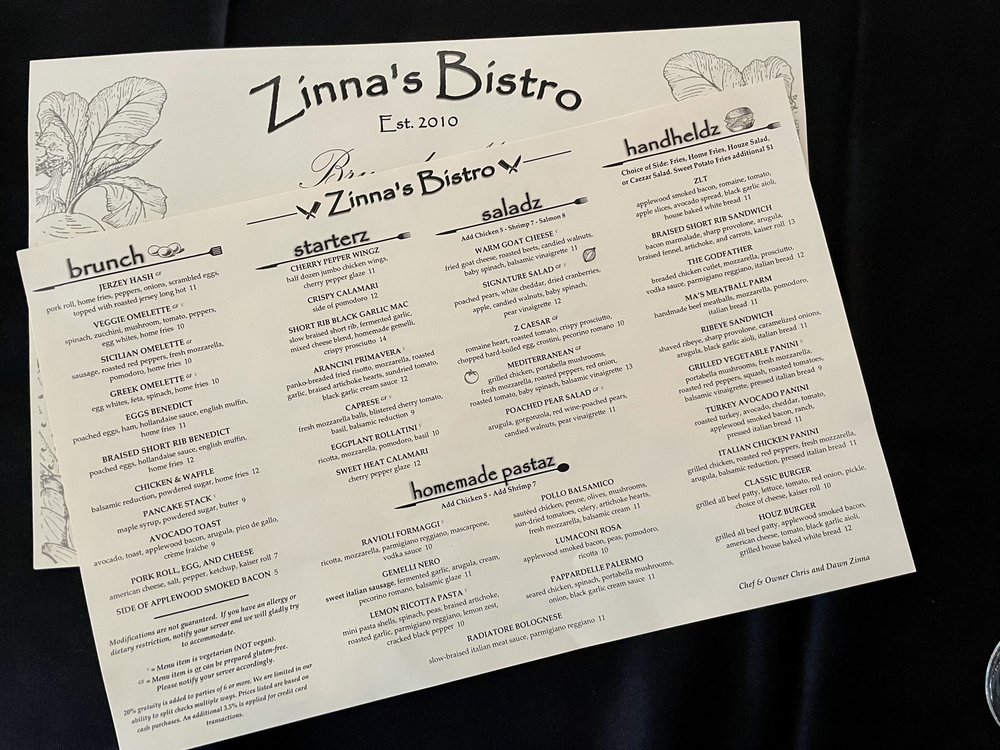 Zinna's Bistro
Est. 2010
Zinna's Bistro
brunch
JERZEY HASH GF
pork roll, home fries, peppers, onions, scrambled eggs,
topped with roasted jersey long hot 11
VEGGIE OMELETTE GF V
spinach, zucchini, mushroom, tomato, peppers,
egg whites, home fries 10
SICILIAN OMELETTE GF
sausage, roasted red peppers, fresh mozzarella,
pomodoro, home fries 10
GREEK OMELETTE GF V
egg whites, feta, spinach, home fries 10
EGGS BENEDICT
poached eggs, ham, hollandaise sauce, english muffin,
home fries 11
BRAISED SHORT RIB BENEDICT
poached eggs, hollandaise sauce, english muffin,
home fries 12
CHICKEN & WAFFLE
balsamic reduction, powdered sugar, home fries 12
PANCAKE STACK V
maple syrup, powdered sugar, butter 9
AVOCADO TOAST
avocado, toast, applewood bacon, arugula, pico de gallo,
crème fraiche 9
PORK ROLL, EGG, AND CHEESE
american cheese, salt, pepper, ketchup, kaiser roll 7
SIDE OF APPLEWOOD SMOKED BACON 5
Modifications are not guaranteed. If you have an allergy or
dietary restriction, notify your server and we will gladly try
to accommodate.
V = Menu item is vegetarian (NOT vegan).
GF = Menu item is or can be prepared gluten-free.
Please notify your server accordingly.
20% gratuity is added to parties of 6 or more. We are limited in our
ability to split checks multiple ways. Prices listed are based on
cash purchases. An additional 3.5% is applied for credit card
transactions.
starterz
CHERRY PEPPER WINGZ
half dozen jumbo chicken wings,
cherry pepper glaze 11
CRISPY CALAMARI
side of pomodoro 12
SHORT RIB BLACK GARLIC MAC
slow braised short rib, fermented garlic,
mixed cheese blend, homemade gemelli,
crispy prosciutto 14
ARANCINI PRIMAVERA V
panko-breaded fried risotto, mozzarella, roasted
garlic, braised artichoke hearts, sundried tomato,
black garlic cream sauce 12
CAPRESE GF V
fresh mozzarella balls, blistered cherry tomato,
basil, balsamic reduction 9
EGGPLANT ROLLATINI V
ricotta, mozzarella, pomodoro, basil 10
SWEET HEAT CALAMARI
cherry pepper glaze 12
saladz
Add Chicken 5 - Shrimp 7 - Salmon 8
WARM GOAT CHEESE V
fried goat cheese, roasted beets, candied walnuts,
baby spinach, balsamic vinaigrette 11
SIGNATURE SALAD GF V
poached pears, white cheddar, dried cranberries,
apple, candied walnuts, baby spinach,
pear vinaigrette 12
Z CAESAR GF
romaine heart, roasted tomato, crispy prosciutto,
chopped hard-boiled egg, crostini, pecorino romano 10
MEDITERRANEAN GF
grilled chicken, portabella mushrooms,
fresh mozzarella, roasted peppers, red onion,
roasted tomato, baby spinach, balsamic vinaigrette 13
POACHED PEAR SALAD GF V
arugula, gorgonzola, red wine-poached pears,
candied walnuts, pear vinaigrette 11
homemade pastaz
Add Chicken 5 - Add Shrimp 7
RAVIOLI FORMAGGI V
ricotta, mozzarella, parmigiano reggiano, mascarpone,
vodka sauce 10
GEMELLI NERO
sweet italian sausage, fermented garlic, arugula, cream,
pecorino romano, balsamic glaze 11
LEMON RICOTTA PASTA V
mini pasta shells, spinach, peas, braised artichoke,
roasted garlic, parmigiano reggiano, lemon zest,
cracked black pepper 10
POLLO BALSAMICO
sautéed chicken, penne, olives, mushrooms,
sun-dried tomatoes, celery, artichoke hearts,
fresh mozzarella, balsamic cream 11
LUMACONI ROSA
applewood smoked bacon, peas, pomodoro,
ricotta 10
PAPPARDELLE PALERMO
seared chicken, spinach, portabella mushrooms,
onion, black garlic cream sauce 11
RADIATORE BOLOGNESE
slow-braised italian meat sauce, parmigiano reggiano 11
handheldz
Choice of Side: Fries, Home Fries, Houze Salad,
or Caezar Salad. Sweet Potato Fries additional $1
ZLT
applewood smoked bacon, romaine, tomato,
apple slices, avocado spread, black garlic aioli,
house baked white bread 11
BRAISED SHORT RIB SANDWICH
bacon marmalade, sharp provolone, arugula,
braised fennel, artichoke, and carrots, kaiser roll 13
THE GODFATHER
breaded chicken cutlet, mozzarella, prosciutto,
vodka sauce, parmigiano reggiano, italian bread 12
MA'S MEATBALL PARM
handmade beef meatballs, mozzarella, pomodoro,
italian bread 11
RIBEYE SANDWICH
shaved ribeye, sharp provolone, caramelized onions,
arugula, black garlic aioli, italian bread 11
GRILLED VEGETABLE PANINI V
portabella mushrooms, fresh mozzarella,
roasted red peppers, squash, roasted tomatoes,
balsamic vinaigrette, pressed italian bread 9
TURKEY AVOCADO PANINI
roasted turkey, avocado, cheddar, tomato,
applewood smoked bacon, ranch,
pressed italian bread 11
ITALIAN CHICKEN PANINI
grilled chicken, roasted red peppers, fresh mozzarella,
arugula, balsamic reduction, pressed italian bread 11
CLASSIC BURGER
grilled all beef patty, lettuce, tomato, red onion, pickle,
choice of cheese, kaiser roll 10
HOUZ BURGER
grilled all beef patty, applewood smoked bacon,
american cheese, tomato, black garlic aioli,
grilled house baked white bread 12
Chef & Owner Chris and Dawn Zinna